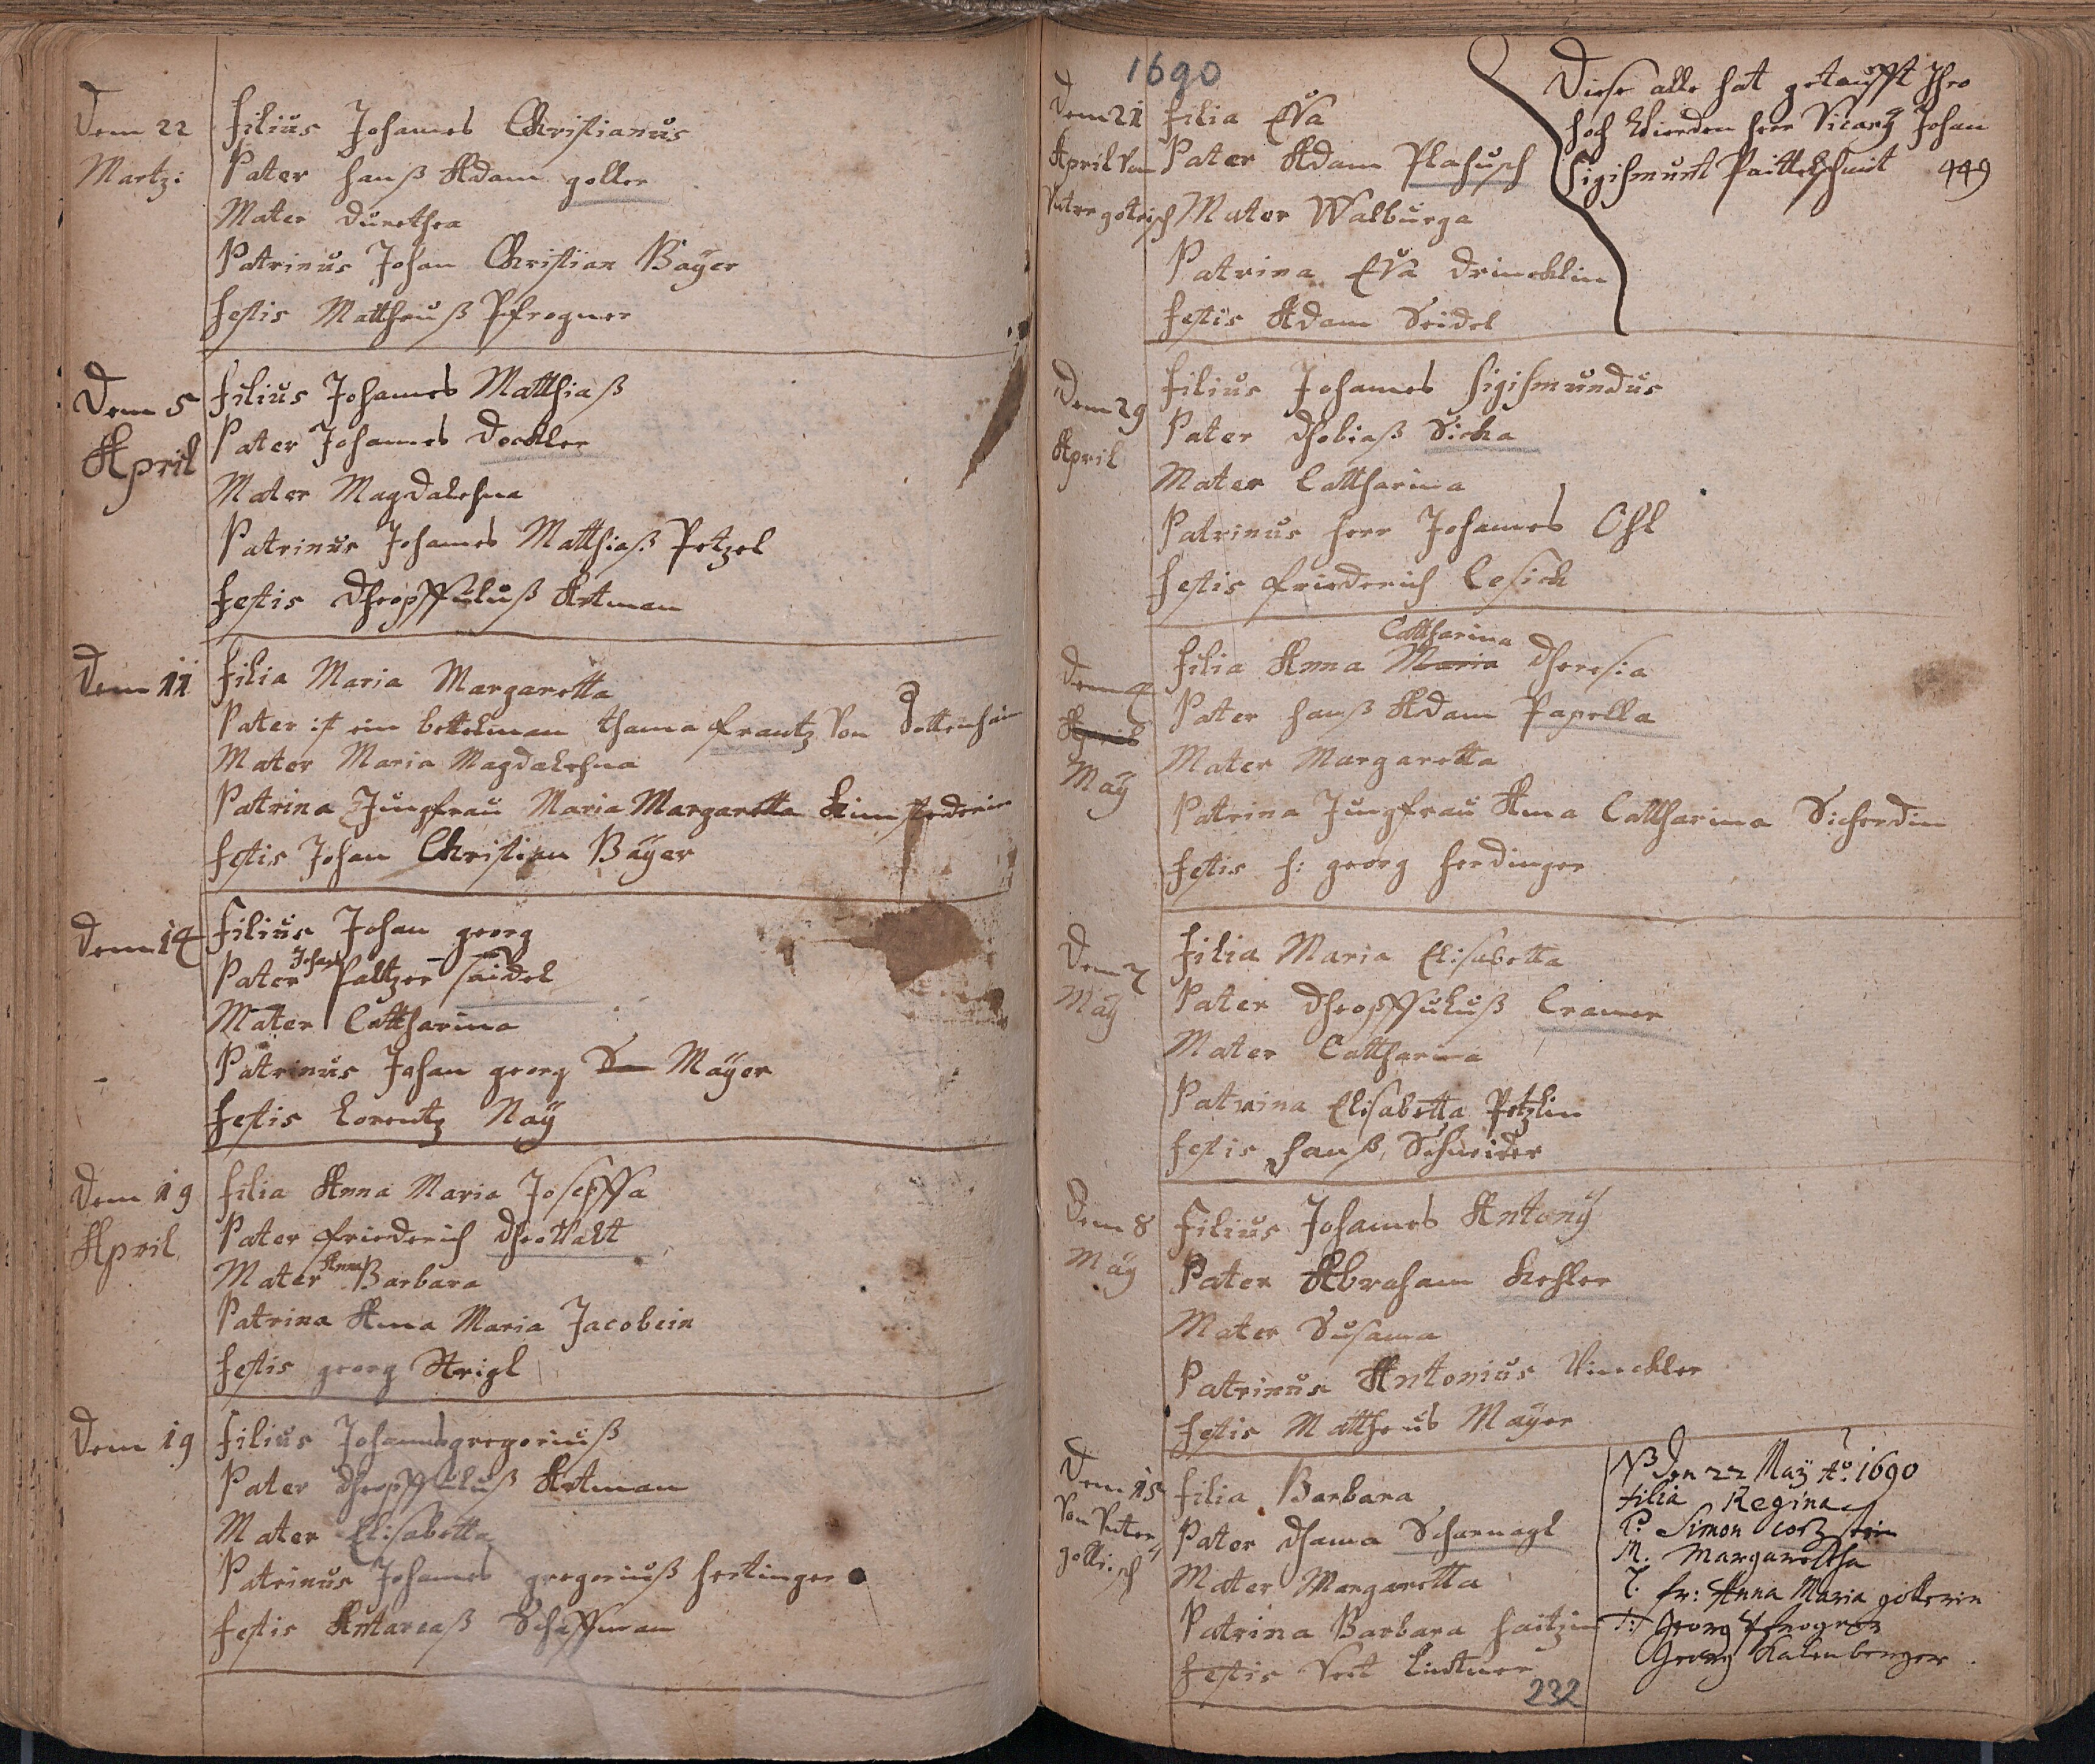 Dem 22
Martz:
Filius Johannes Christianus
Pater Hanß Adam Goller
Mater Durethea
Patrinus Johan Christian Bäÿer
Testis Mattheuß Pfrogner
Dem 5
April
Filius Johannes Matthiaß
Pater Johannes Deckler
Mater Magdalehna
Patrinus Johannes Matthiaß Petzel
Testis Dheoffiluß Artman
Dem 11
Filia Maria Margaretta
Pater ist ein bettelman thama Frantz Von
Mater Maria Magdalehna
Patrina Jungfrau Maria Margaretta
Testis Johan Christian Bäÿer
Dem 14
Filius Johan georg
Johan
Pater Paltzer Saidel
Mater Cattharina
Patrinus Johan georg Mäÿer
Testis Lorentz Naÿ
Dem 19
April
Filia Anna Maria Joseffa
Pater Friederich Dheowalt
Anna
Mater Barbara
Patrina Anna Maria Jacobein
Testis georg Strigl
Dem 19
Filius Johannes gregoriuß
Pater Dheoffiluß Artman
Mater Elisabetta
Patrinus Johannes gregoriuß Hertinger
Testis Antareaß Schaffman
1690
Diese alle hat getaufft Ihro
Hoch Wierden Herr Vicarÿ Johan
Sigißmunt Paittelschmit 449
Dem 21
April Von
Filia Eva
Pater Adam Plahusch
Mater Walburga
Patrina Eva
Testis Adam Seidel
Dem 29
April
Filius Johannes Sigißmundus
Pater Dhobiaß Sicka
Mater Cattharina
Patrinus Herr Johannes Ohl
Testis Friederich Cesich
Dem 4
April
Maÿ
Cattharina
Filia Anna Maria Dheresia
Pater Hanß Adam Papella
Mater Margaretta
Patrina Jungfrau Anna Cattharina Sicherdin
Testis H: georg Herdinger
Dem 7
Maÿ
Filia Maria Elisabetta
Pater Dheoffiluß Cramer
Mater Cattharina
Patrina Elisabetta Petzlin
Testis Hanß Schneider
Dem 8
Maÿ
Filius Johannes Antonÿ
Pater Abraham Kehler
Mater Susanna
Patrinus Antonius Winckler
Testis Mattheus Mäÿer
Dem 15
Von Unter
gottisch
Filia Barbara
Pater Dhama Scharnagl
Mater Margaretta
Patrina Barbara Haitzin
Testis Veit Lintner
NB Den 22 Maÿ Ao. 1690
Filia Regina
P. Simon
M. Margaretha
fr: Anna Maria gollerin
T: Georg Pfrogner
Georg Kalenberger
232